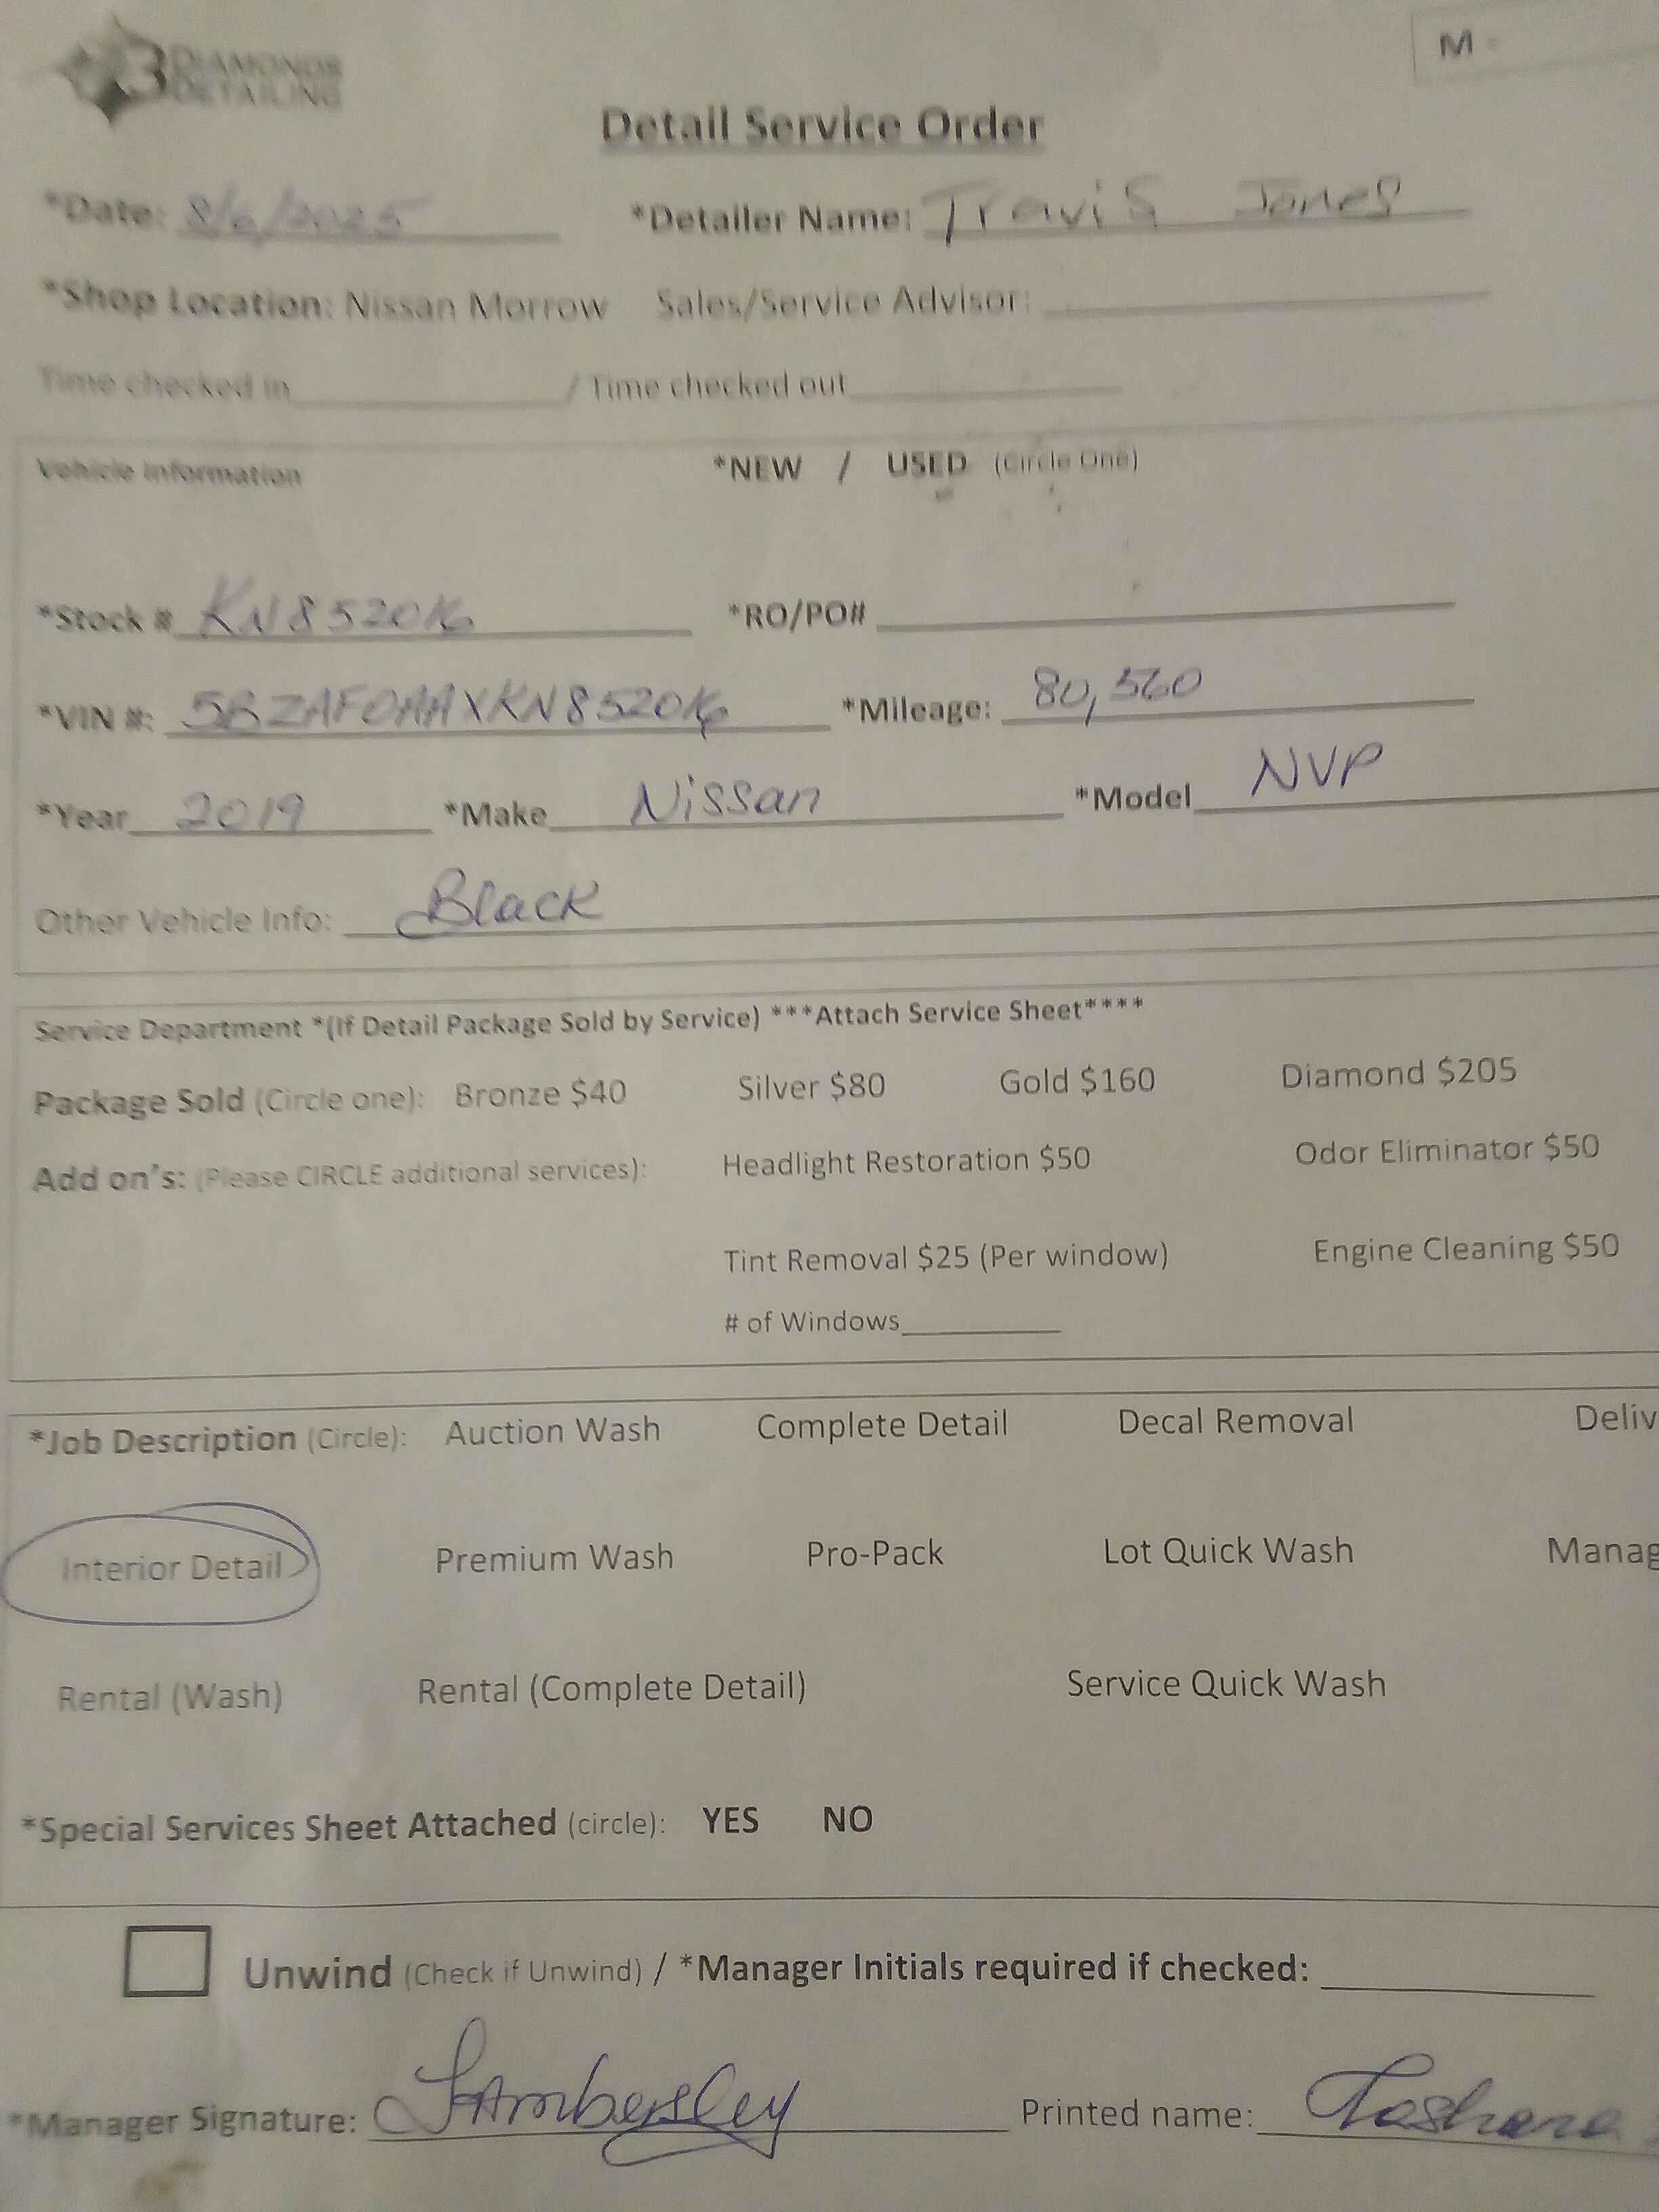 3 DIAMONDS DETAILING
M -
Detail Service Order
*Date: 8/6/2025 *Detailer Name: Travis Jones
*Shop Location: Nissan Morrow Sales/Service Advisor:
Time checked in / Time checked out
Vehicle Information *NEW / USED (Circle One)
*Stock # KN852016 *RO/PO#
*VIN #: 5BZAF0AAXKN852016 *Mileage: 80,560
*Year 2019 *Make Nissan *Model NVP
Other Vehicle Info: Black
Service Department *(If Detail Package Sold by Service) ***Attach Service Sheet****
Package Sold (Circle one): Bronze $40 Silver $80 Gold $160 Diamond $205
Add on's: (Please CIRCLE additional services): Headlight Restoration $50 Odor Eliminator $50
Tint Removal $25 (Per window) Engine Cleaning $50
# of Windows
*Job Description (Circle): Auction Wash Complete Detail Decal Removal Deliv
Interior Detail Premium Wash Pro-Pack Lot Quick Wash Manag
Rental (Wash) Rental (Complete Detail) Service Quick Wash
*Special Services Sheet Attached (circle): YES NO
Unwind (Check if Unwind) / *Manager Initials required if checked:
*Manager Signature: Printed name: Tashana